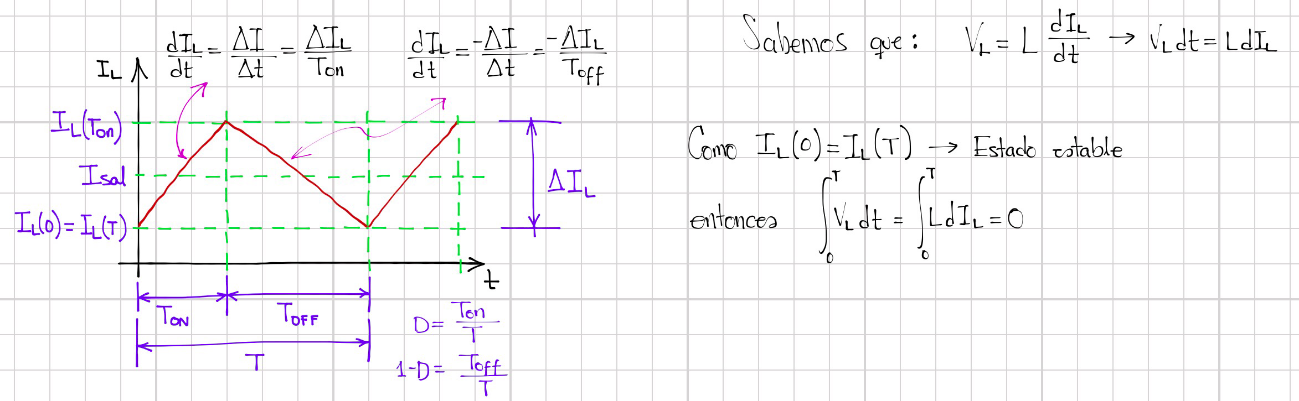 dI_L/dt = ΔI/Δt = ΔI_L/Ton
dI_L/dt = -ΔI/Δt = -ΔI_L/Toff
I_L
I_L(Ton)
Isal
I_L(0) = I_L(T)
ΔI_L
t
T_ON
T_OFF
T
D = Ton/T
1-D = Toff/T
Sabemos que: V_L = L dI_L/dt → V_L dt = L dI_L
Como I_L(0) = I_L(T) → Estado estable
entonces ∫₀ᵀ V_L dt = ∫₀ᵀ L dI_L = 0